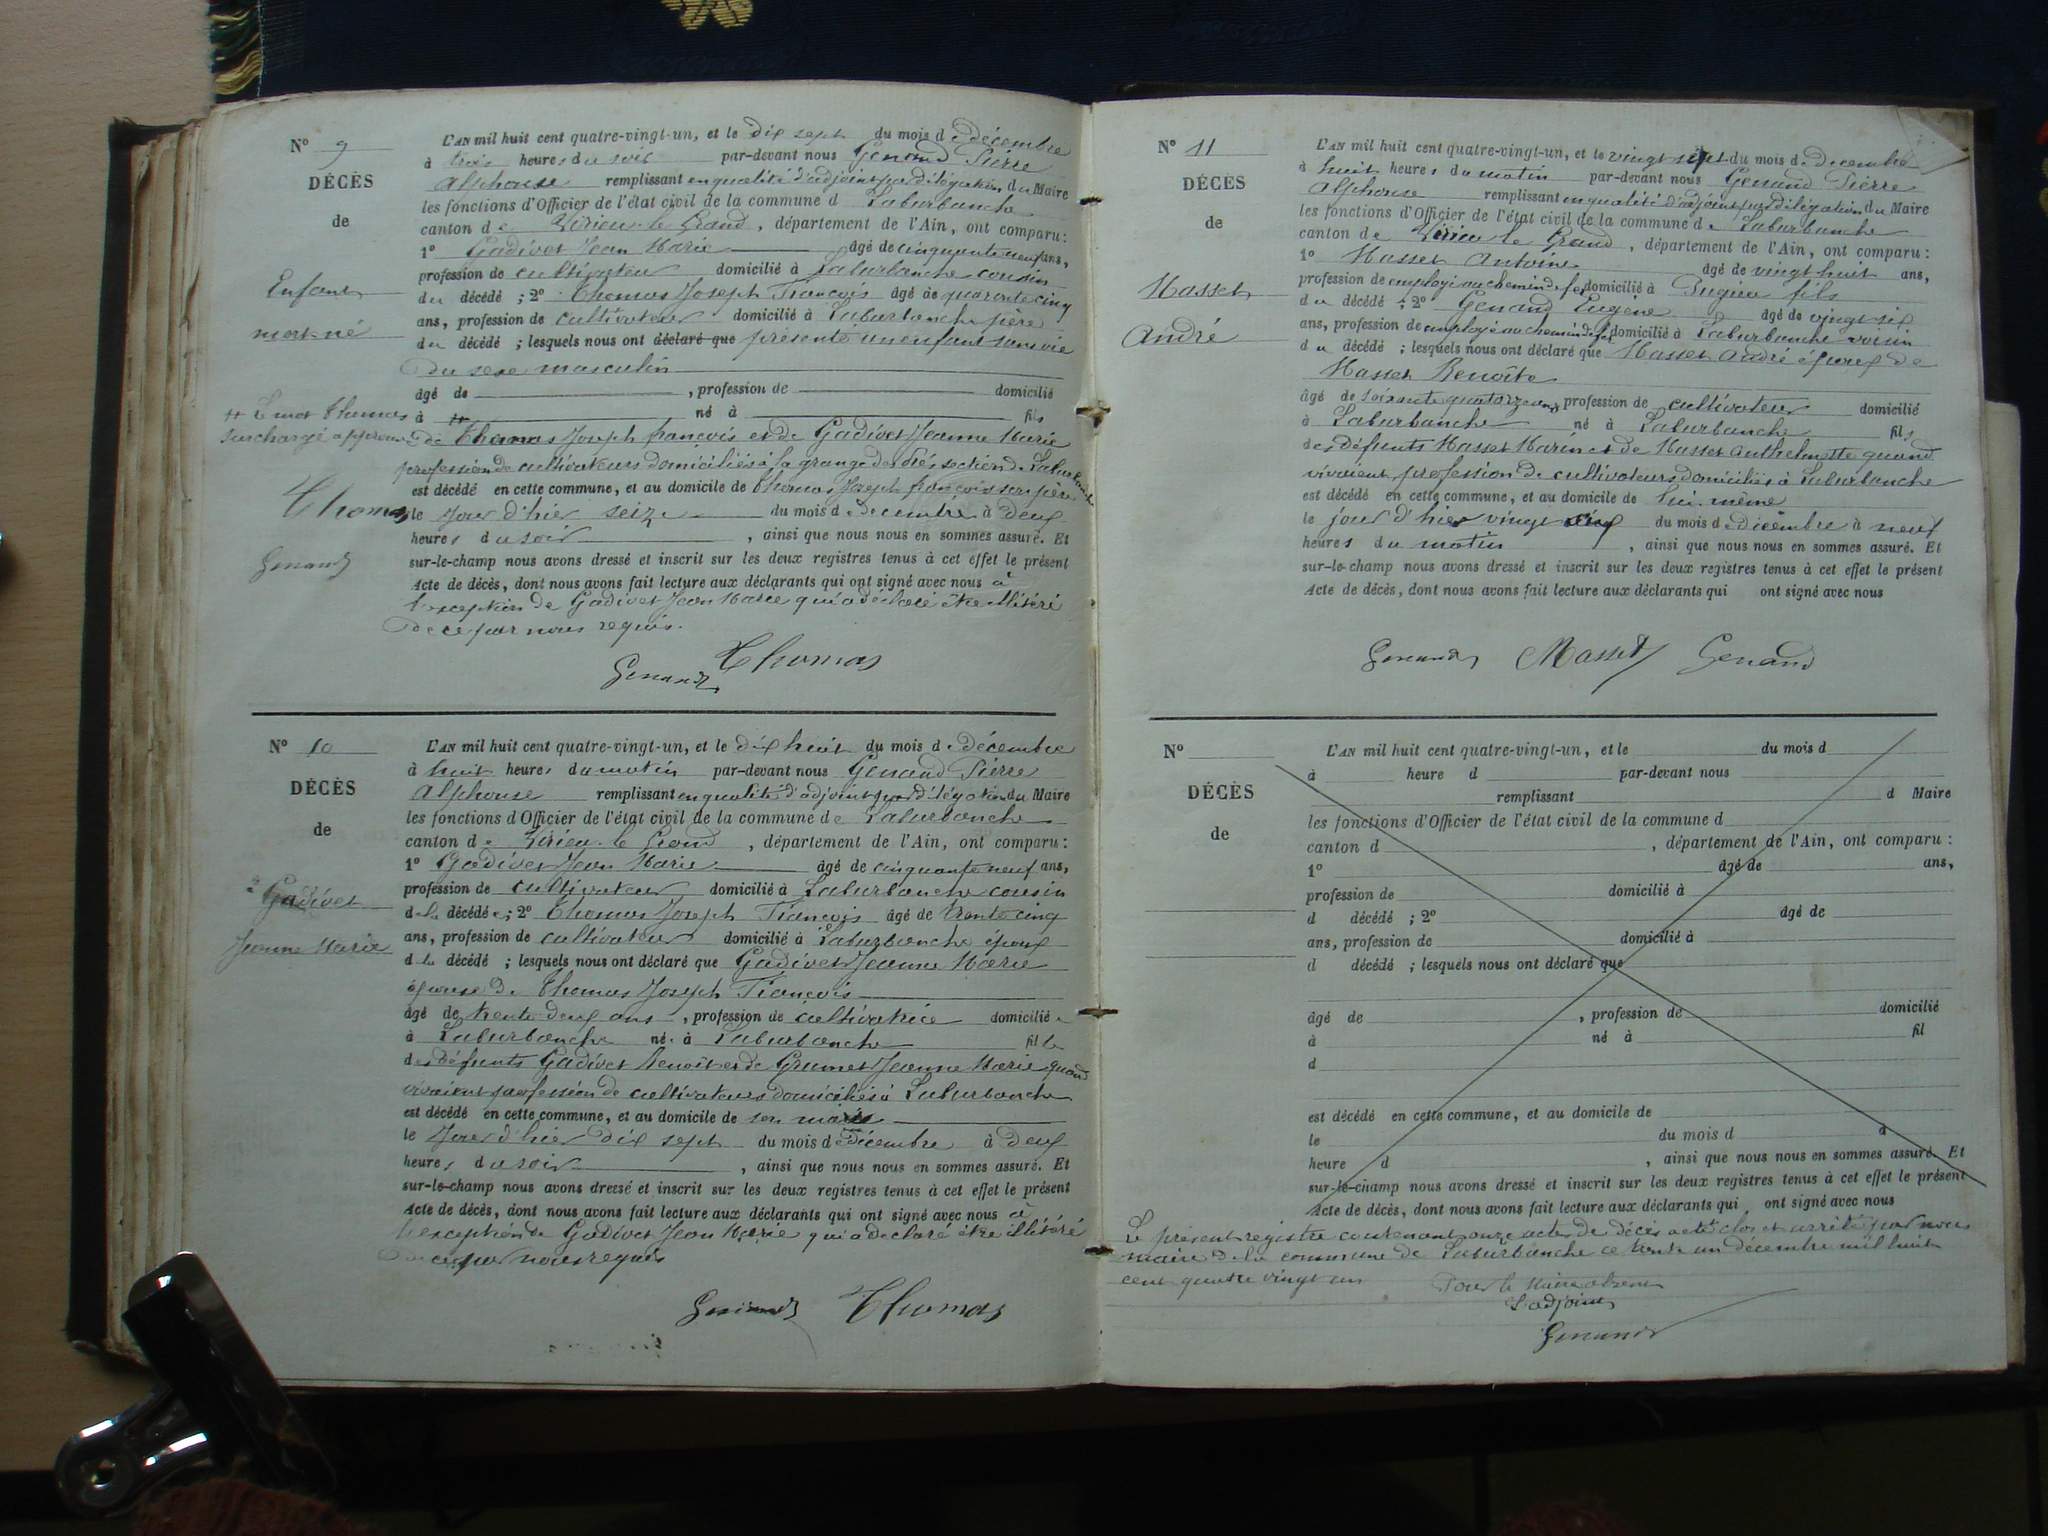 N° 9
DÉCÈS
de
Enfant
mort-né
Le mot Thomas
surchargé approuvé
Thomas
Genand
L'AN mil huit cent quatre-vingt-un, et le dix sept du mois de décembre
à trois heures du soir par-devant nous Genand Pierre
Alphonse remplissant en qualité d'adjoint par délégation du Maire
les fonctions d'Officier de l'état civil de la commune d Laburbanche
canton de Virieu-le Grand, département de l'Ain, ont comparu :
1° Gadivet Jean Marie âgé de cinquante neuf ans,
profession de cultivateur domicilié à Laburbanche cousin
du décédé ; 2° Thomas Joseph François âgé de quarante cinq
ans, profession de cultivateur domicilié à Laburbanche père
du décédé ; lesquels nous ont déclaré que présenté un enfant sans vie
du sexe masculin
âgé de , profession de domicilié
à né à fils
de Thomas Joseph françois et de Gadivet Jeanne Marie
profession de cultivateurs domiciliés à la grange des Prés section de Laburbanche
est décédé en cette commune, et au domicile de Thomas Joseph françois son père
le jour d'hier seize du mois de décembre à deux
heures du soir , ainsi que nous nous en sommes assuré. Et
sur-le-champ nous avons dressé et inscrit sur les deux registres tenus à cet effet le présent
Acte de décès, dont nous avons fait lecture aux déclarants qui ont signé avec nous à
l'exception de Gadivet Jean Marie qui a déclaré être illitéré
de ce par nous requis.
Genand Thomas
N° 10
DÉCÈS
de
Gadivet
Jeanne Marie
L'AN mil huit cent quatre-vingt-un, et le dix huit du mois de décembre
à huit heures du matin par-devant nous Genand Pierre
Alphonse remplissant en qualité d'adjoint par délégation du Maire
les fonctions d'Officier de l'état civil de la commune de Laburbanche
canton de Virieu-le Grand , département de l'Ain, ont comparu :
1° Gadivet Jean Marie âgé de cinquante neuf ans,
profession de cultivateur domicilié à Laburbanche cousin
de la décédée ; 2° Thomas Joseph François âgé de trente cinq
ans, profession de cultivateur domicilié à Laburbanche époux
de la décédé ; lesquels nous ont déclaré que Gadivet Jeanne Marie
épouse de Thomas Joseph François
âgé de trente deux ans , profession de cultivatrice domicilié e
à Laburbanche né à Laburbanche fille
des défunts Gadivet Benoit et de Grumet Jeanne Marie quand
vivaient profession de cultivateurs domiciliés à Laburbanche
est décédé en cette commune, et au domicile de son mari
le jour d'hier dix sept du mois de décembre à deux
heures du soir , ainsi que nous nous en sommes assuré. Et
sur-le-champ nous avons dressé et inscrit sur les deux registres tenus à cet effet le présent
Acte de décès, dont nous avons fait lecture aux déclarants qui ont signé avec nous à
l'exception de Gadivet Jean Marie qui a déclaré être illitéré
de ce par nous requis
Genand Thomas
N° 11
DÉCÈS
de
Masset
André
L'AN mil huit cent quatre-vingt-un, et le vingt sept du mois de décembre
à huit heures du matin par-devant nous Genand Pierre
Alphonse remplissant en qualité d'adjoint par délégation du Maire
les fonctions d'Officier de l'état civil de la commune de Laburbanche
canton de Virieu le Grand , département de l'Ain, ont comparu :
1° Masset Antoine âgé de vingt huit ans,
profession de employé au chemin de fer domicilié à Pugieu fils
du décédé ; 2° Genand Eugène âgé de vingt six
ans, profession de employé au chemin de fer domicilié à Laburbanche voisin
du décédé ; lesquels nous ont déclaré que Masset André époux de
Masset Benoîte
âgé de soixante quatorze ans, profession de cultivateur domicilié
à Laburbanche né à Laburbanche fils
des défunts Masset Marin et de Masset Anthelmette quand
vivaient profession de cultivateurs domiciliés à Laburbanche
est décédé en cette commune, et au domicile de lui même
le jour d'hier vingt du mois de décembre à neuf
heures du matin , ainsi que nous nous en sommes assuré. Et
sur-le-champ nous avons dressé et inscrit sur les deux registres tenus à cet effet le présent
Acte de décès, dont nous avons fait lecture aux déclarants qui ont signé avec nous
Genand Masset Genand
N°
DÉCÈS
de
L'AN mil huit cent quatre-vingt-un, et le du mois d
à heure d par-devant nous
remplissant d Maire
les fonctions d'Officier de l'état civil de la commune d
canton d , département de l'Ain, ont comparu :
1° âgé de ans,
profession de domicilié à
d décédé ; 2° âgé de
ans, profession de domicilié à
d décédé ; lesquels nous ont déclaré que
âgé de , profession de domicilié
à né à fil
d
est décédé en cette commune, et au domicile de
le du mois d à
heure d , ainsi que nous nous en sommes assuré. Et
sur-le-champ nous avons dressé et inscrit sur les deux registres tenus à cet effet le présent
Acte de décès, dont nous avons fait lecture aux déclarants qui ont signé avec nous
Le présent registre contenant onze actes de décès a été clos et arrêté par nous
maire de la commune de Laburbanche ce trente un décembre mil huit
cent quatre vingt un
Pour le Maire absent
L'adjoint
Genand